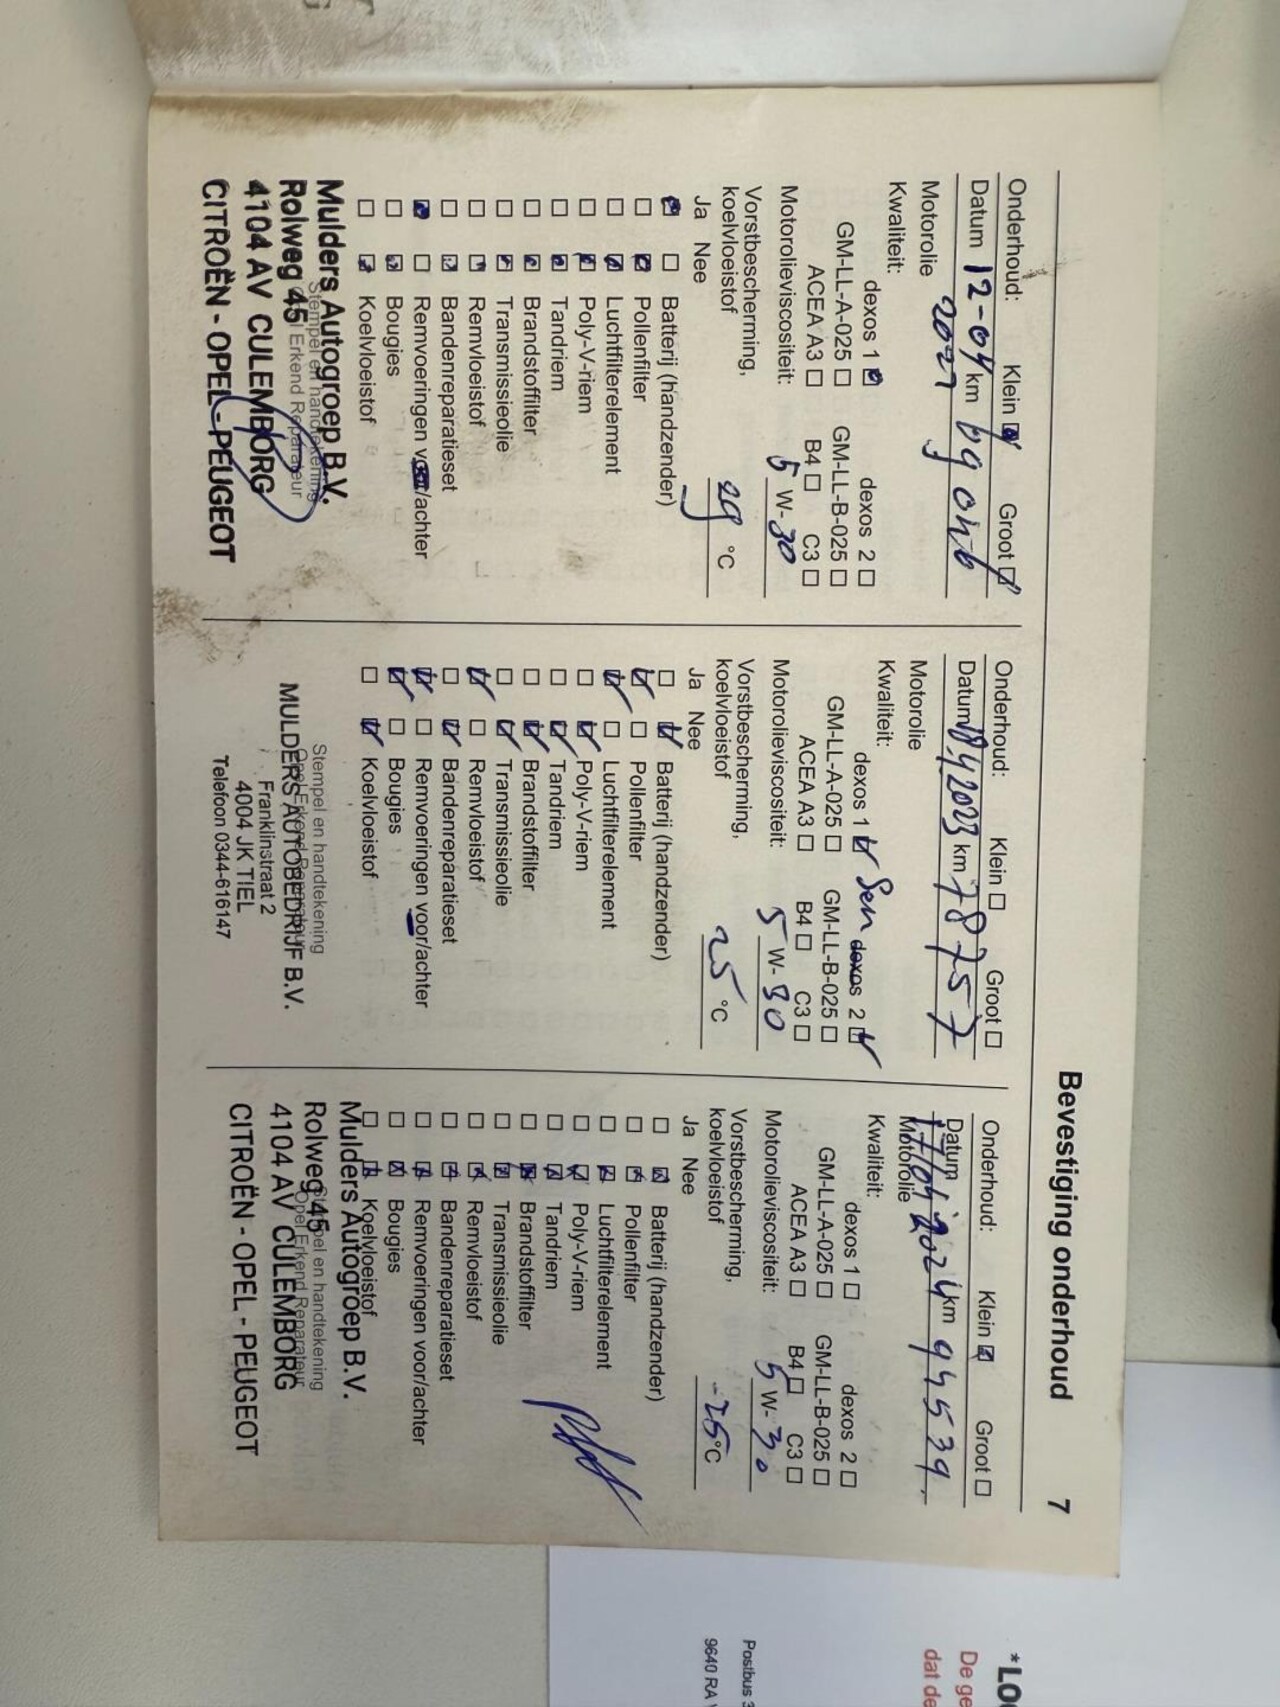 Bevestiging onderhoud 7
Onderhoud: Klein Groot
Datum 12-04 km 69046
2021
Motorolie
Kwaliteit:
dexos 1 dexos 2
GM-LL-A-025 GM-LL-B-025
ACEA A3 B4 C3
Motorolieviscositeit: 5 W-30
Vorstbescherming,
koelvloeistof 29 °C
Ja Nee
Batterij (handzender)
Pollenfilter
Luchtfilterelement
Poly-V-riem
Tandriem
Brandstoffilter
Transmissieolie
Remvloeistof
Bandenreparatieset
Remvoeringen voor/achter
Bougies
Koelvloeistof
Stempel en handtekening
Opel Erkend Reparateur
Mulders Autogroep B.V.
Rolweg 45
4104 AV CULEMBORG
CITROËN - OPEL - PEUGEOT
Onderhoud: Klein Groot
Datum 2023 km 78757
Motorolie
Kwaliteit:
dexos 1 dexos 2
GM-LL-A-025 GM-LL-B-025
ACEA A3 B4 C3
Motorolieviscositeit: 5 W-30
Vorstbescherming,
koelvloeistof 25 °C
Ja Nee
Batterij (handzender)
Pollenfilter
Luchtfilterelement
Poly-V-riem
Tandriem
Brandstoffilter
Transmissieolie
Remvloeistof
Bandenreparatieset
Remvoeringen voor/achter
Bougies
Koelvloeistof
Stempel en handtekening
Opel Erkend Reparateur
MULDERS AUTOBEDRIJF B.V.
Franklinstraat 2
4004 JK TIEL
Telefoon 0344-616147
Onderhoud: Klein Groot
Datum 17/04/2024 km 94539
Motorolie
Kwaliteit:
dexos 1 dexos 2
GM-LL-A-025 GM-LL-B-025
ACEA A3 B4 C3
Motorolieviscositeit: 5 W-30
Vorstbescherming,
koelvloeistof -25 °C
Ja Nee
Batterij (handzender)
Pollenfilter
Luchtfilterelement
Poly-V-riem
Tandriem
Brandstoffilter
Transmissieolie
Remvloeistof
Bandenreparatieset
Remvoeringen voor/achter
Bougies
Koelvloeistof
Stempel en handtekening
Opel Erkend Reparateur
Mulders Autogroep B.V.
Rolweg 45
4104 AV CULEMBORG
CITROËN - OPEL - PEUGEOT
*LO
De ge
dat de
Postbus 3
9640 RA